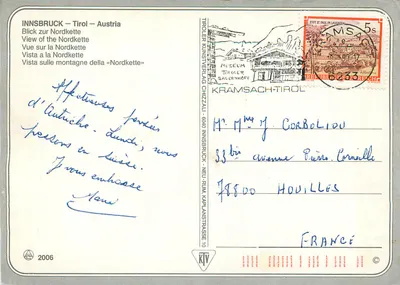 INNSBRUCK – Tirol – Austria
Blick zur Nordkette
View of the Nordkette
Vue sur la Nordkette
Vista a la Nordkette
Vista sulle montagne della «Nordkette»
Affectueuses pensées
d'Autriche. Lundi, nous
passons en Suisse.
Je vous embrasse
2006
TIROLER KUNSTVERLAG CHIZZALI · 6040 INNSBRUCK · NEU RUM, KAPLANSTRASSE
KTV
MUSEUM
TIROLER
BAUERNHÖFE
KRAMSACH-TIROL
KRAMSACH
6233
5s
Mr Mme J CORBOLIOU
33bis avenue Pierre Corneille
78800 HOUILLES
FRANCE
©